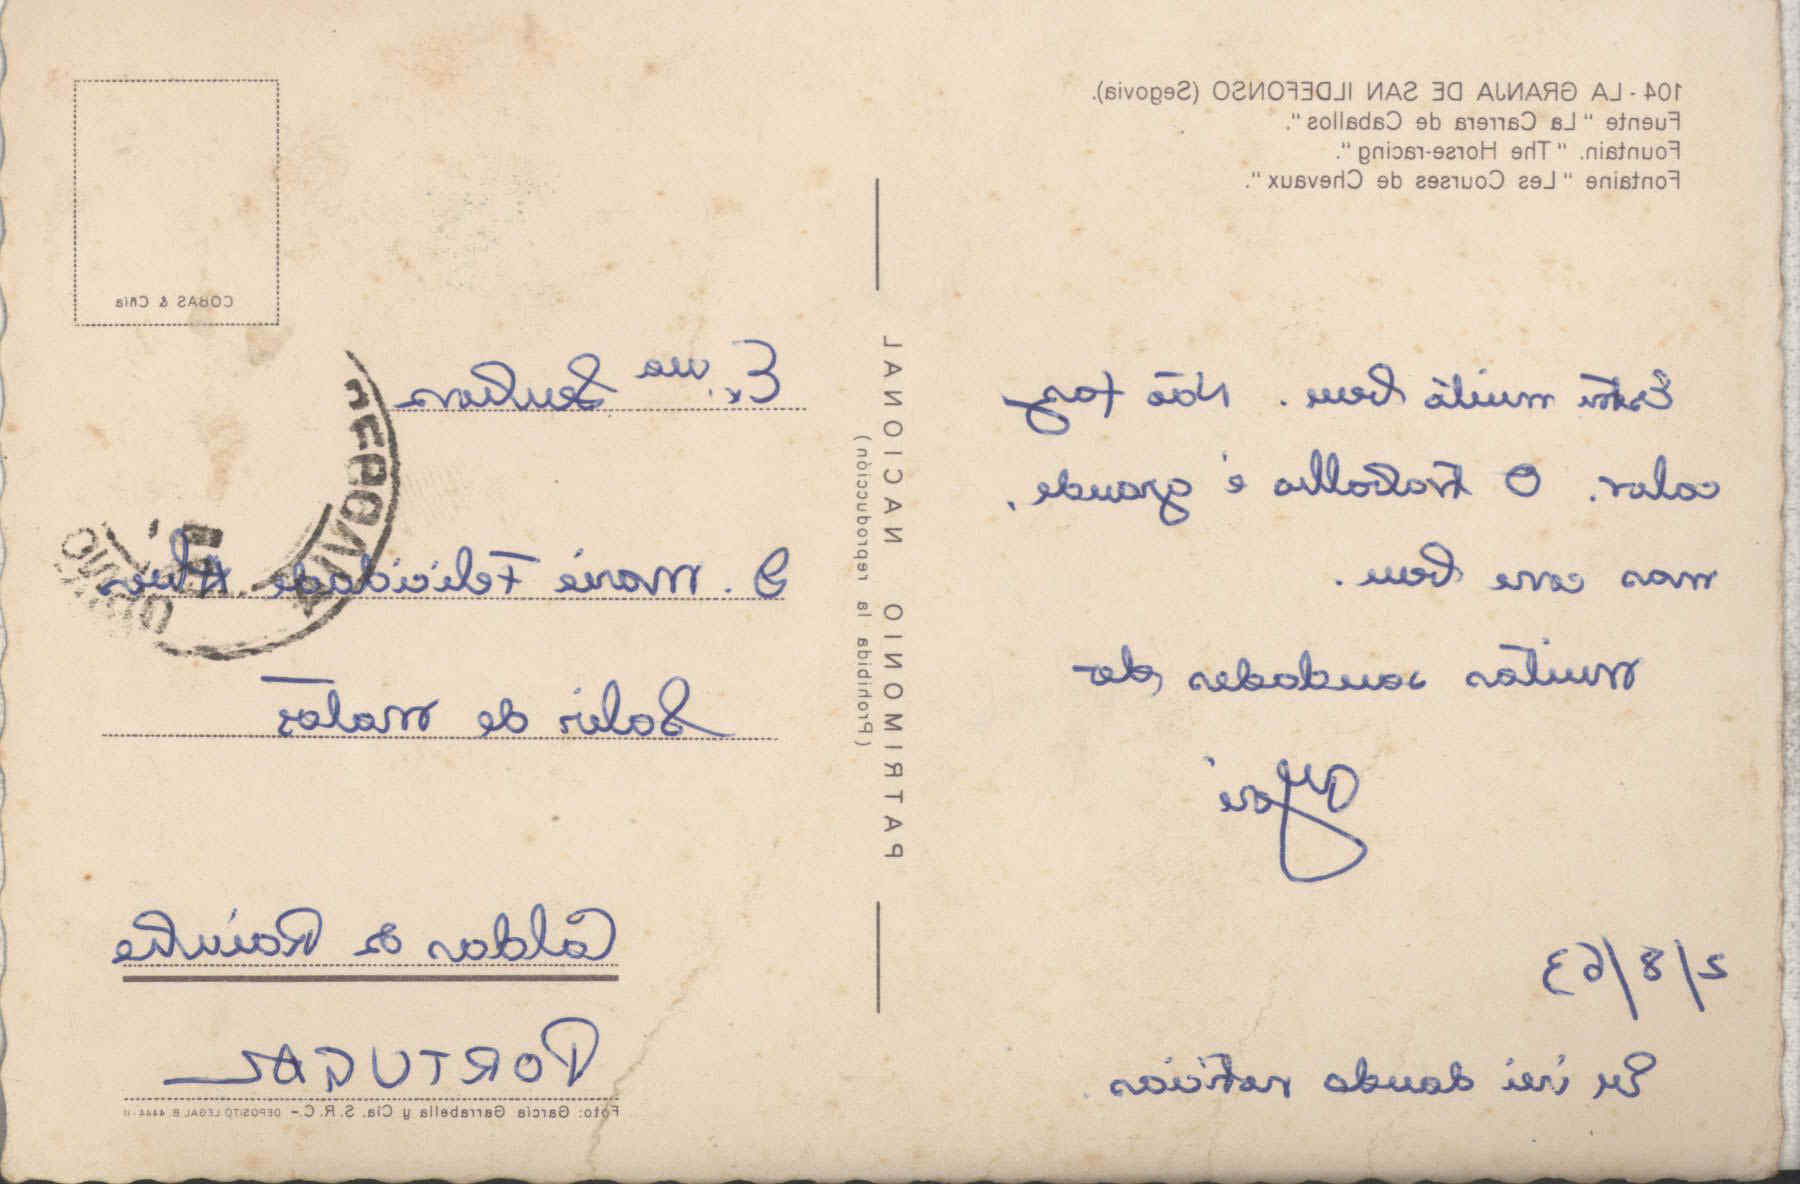 104 - LA GRANJA DE SAN ILDEFONSO (Segovia).
Fuente "La Carrera de Caballos".
Fountain. "The Horse-racing".
Fontaine "Les Courses de Chevaux".
Está muito bem. Não faz
calor. O trabalho é grande,
mas corre bem.
Muitas saudades do
2/8/63
Eu irei dando notícias
PATRIMONIO NACIONAL
(Prohibida la reproducción)
COBAS & Cñia
Ex.ma Senhora
D. Maria Felicidade Alves
Solar de Mato
Caldas da Rainha
PORTUGAL
Foto: García Garrabella y Cía. S.R.C. - DEPOSITO LEGAL B. 4444